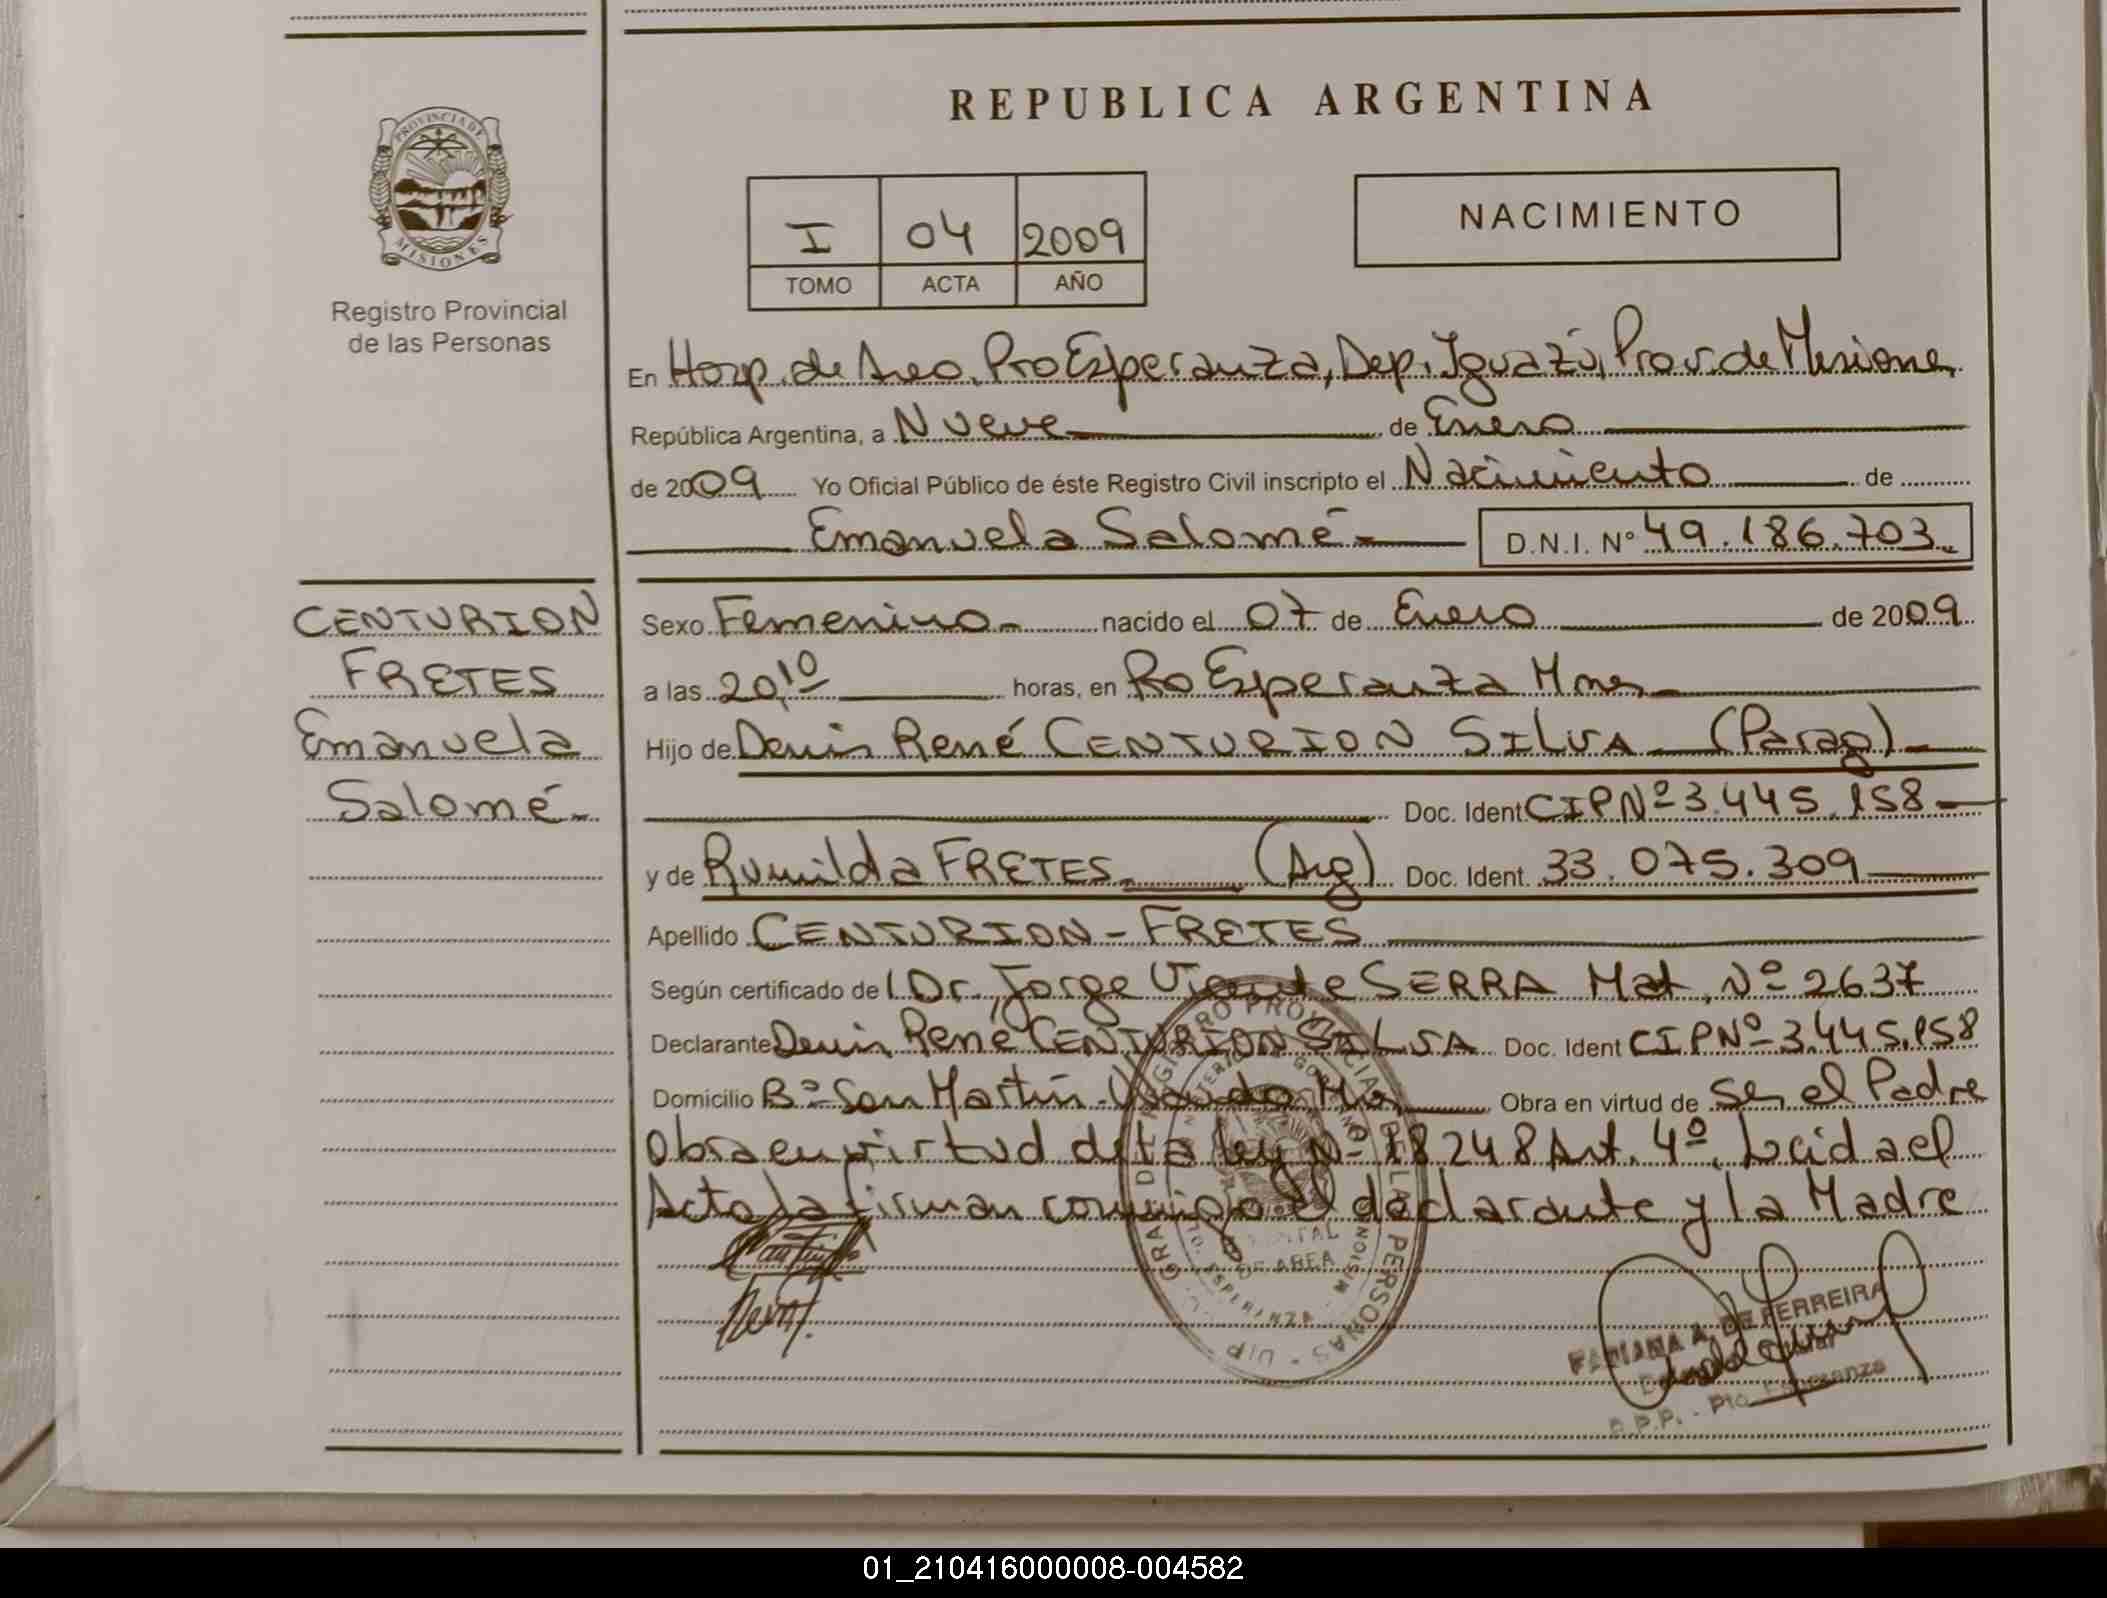 REPUBLICA ARGENTINA
PROVINCIA DE
MISIONES
Registro Provincial
de las Personas
I 04 2009
TOMO ACTA AÑO
NACIMIENTO
En Hosp. de Area Pto Esperanza, Dep. Iguazú, Prov. de Misiones
República Argentina, a Nueve de Enero
de 2009 Yo Oficial Público de éste Registro Civil inscripto el Nacimiento de
Emanuela Salomé D.N.I. Nº 49.186.703
CENTURION
FRETES
Emanuela
Salomé
Sexo Femenino nacido el 07 de Enero de 2009
a las 20,10 horas, en Pto Esperanza Mnes
Hijo de Denis René CENTURION SILVA (Parag)
Doc. Ident CIPNº 3.445.158
y de Rumilda FRETES (Arg) Doc. Ident. 33.075.309
Apellido CENTURION - FRETES
Según certificado de l Dr. Jorge Vicente SERRA Mat. Nº 2637
Declarante Denis René CENTURION SILVA Doc. Ident CIPNº 3.445.158
Domicilio Bº San Martín - Wanda Mnes Obra en virtud de ser el Padre
Obra en virtud de la ley Nº 18.248 Art. 4º. Leida el
Acta la firman conmigo el declarante y la Madre
REGISTRO PROVINCIAL DE LAS PERSONAS
DE AREA
ESPERANZA - MISIONES
FABIANA A. DE FERREIRA
R.P.P. - Pto. Esperanza
01_210416000008-004582